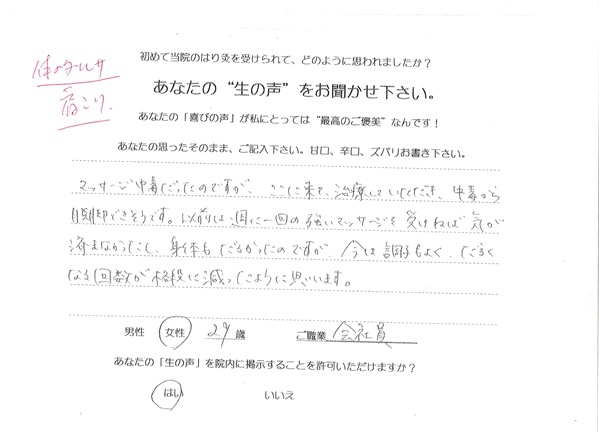 体のダルサ
肩こり
初めて当院のはり灸を受けられて、どのように思われましたか？
あなたの“生の声”をお聞かせ下さい。
あなたの「喜びの声」が私にとっては“最高のご褒美”なんです！
あなたの思ったそのまま、ご記入下さい。甘口、辛口、ズバリお書き下さい。
マッサージ中毒だったのですが、ここに来て、治療していただき、中毒から
脱却できそうです。以前は週に一回の強いマッサージを受けねば気が
済まなかったし、身体もだるかったのですが、今は調子もよく、だるく
なる回数が格段に減ったように思います。
男性 女性 29 歳 ご職業 会社員
あなたの「生の声」を院内に掲示することを許可いただけますか？
はい いいえ